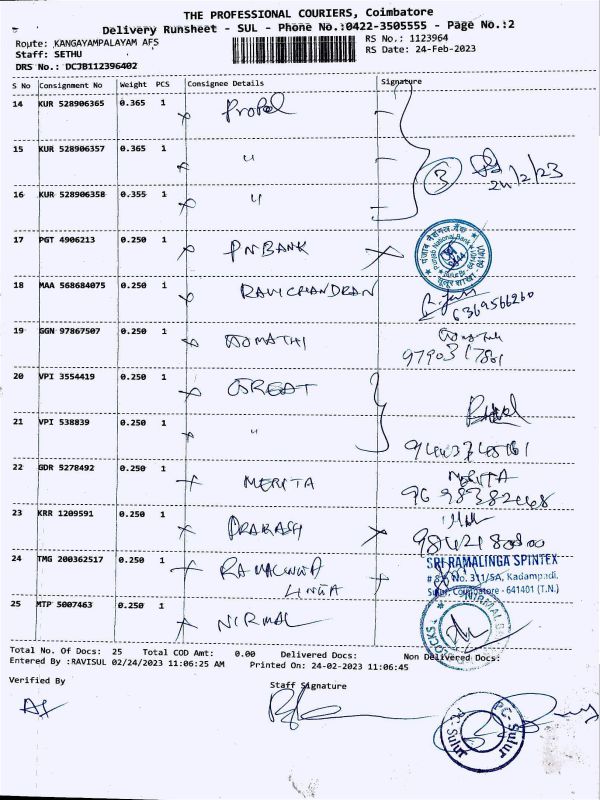 THE PROFESSIONAL COURIERS, Coimbatore
Delivery Runsheet - SUL - Phone No.:0422-3505555 - Page No.:2
Route: KANGAYAMPALAYAM AFS
Staff: SETHU
DRS No.: DCJB112396402
RS No.: 1123964
RS Date: 24-Feb-2023
S No Consignment No Weight PCS Consignee Details Signature
14 KUR 528906365 0.365 1 Propel
15 KUR 528906357 0.365 1 "
3 24/2/23
16 KUR 528906358 0.355 1 "
17 PGT 4906213 0.250 1 PN BANK
पंजाब नैशनल बैंक
Punjab National Bank
18 MAA 568684075 0.250 1 RAVICHANDRAN
6369566260
19 GGN 97867507 0.250 1 GOMATHI
9790317801
20 VPI 3554419 0.250 1 GREAT
21 VPI 538839 0.250 1 "
22 GDR 5278492 0.250 1 MERITA
MERITA
23 KRR 1209591 0.250 1 PRAKASH
24 TMG 200362517 0.250 1 RAMALINGA
LINGA
SRI RAMALINGA SPINTEX
No. 311/5A, Kadampadi,
Sulur, Coimbatore - 641401 (T.N.)
25 MTP 5007463 0.250 1 NIRMAL
Total No. Of Docs: 25 Total COD Amt: 0.00 Delivered Docs: Non Delivered Docs:
Entered By :RAVISUL 02/24/2023 11:06:25 AM Printed On: 24-02-2023 11:06:45
Verified By
Staff Signature
Sulur
Sulur